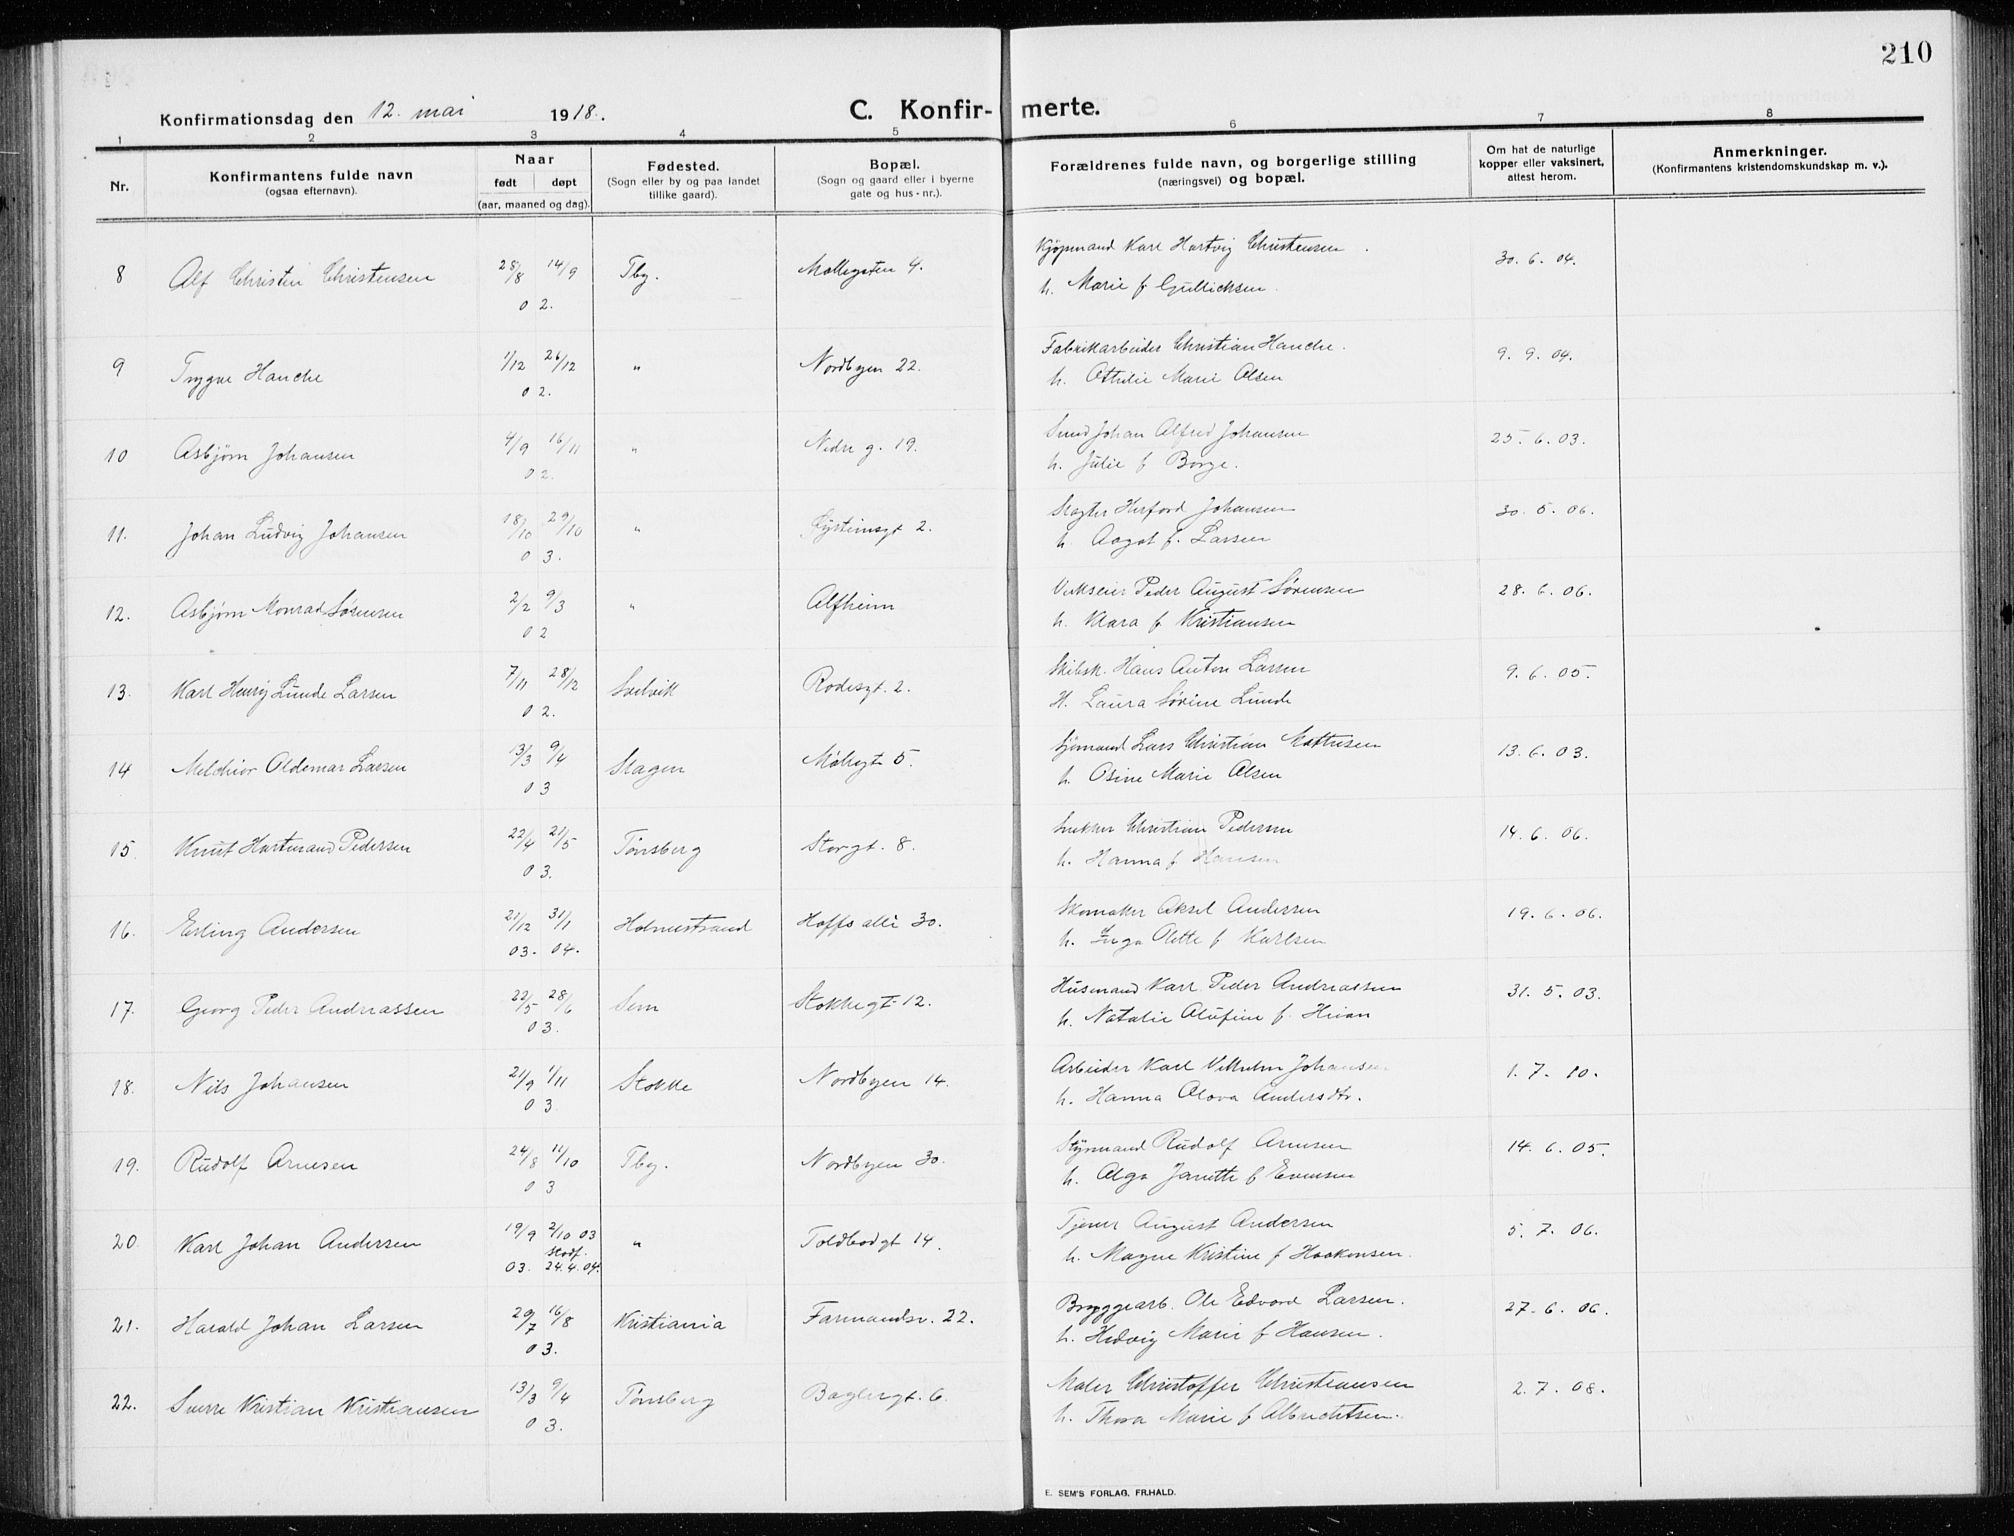 210
Konfirmationsdag den 12. mai 1918.
C. Konfirmerte.
1 2 3 4 5 6 7 8
Nr.
Konfirmantens fulde navn
(ogsaa efternavn).
Naar
født døpt
(aar, maaned og dag).
Fødested.
(Sogn eller by og paa landet
tillike gaard).
Bopæl.
(Sogn og gaard eller i byerne
gate og hus-nr.).
Forældrenes fulde navn, og borgerlige stilling
(næringsvei) og bopæl.
Om hat de naturlige
kopper eller vaksinert,
attest herom.
Anmerkninger.
(Konfirmantens kristendomskundskap m. v.).
8 Alf Christin Christensen 28/8 14/9 Tbg. Møllegaten 4. Kjøpmand Karl Hartvig Christensen 30. 6. 04.
02. h. Marie f Gullichsen.
9 Trygve Hanche 1/12 26/12 " Nordbyen 22. Fabrikarbeider Christian Hanche. 9. 9. 04.
02. h. Othilie Marie Olsen
10 Asbjørn Johansen 4/9 16/11 " Nedre g. 19. Smed Johan Alfred Johansen 25. 6. 03.
02. h. Julie f Borge.
11. Johan Ludvig Johansen 18/10 29/10 " 2. Slagter Herford Johansen 30. 5. 06.
03. h. Aagot f. Larsen
12. Asbjørn Monrad Sørensen 2/2 9/3 " Alfheim Verkseier Peder August Sørensen 28. 6. 06.
02 h. Klara f Kristiansen
13. Karl Henrij Lunde Larsen 7/11 28/12 Svelvik Rodesgt. 2. Skibsk. Hans Anton Larsen 9. 6. 05.
02. H. Laura Sørine Lunde
14 Melchior Oldemar Larsen 13/3 9/4 Slagen Møllegt 5. Sjømand Lars Christian Mathisen 13. 6. 03.
03 h. Osine Marie Olsen
15. Knut Hartmand Pedersen 22/4 21/5 Tønsberg Storgt. 8. Snekker Christian Pedersen 14. 6. 06.
03. h. Hanna f Hansen
16. Erling Andersen 21/12 31/1 Holmestrand Hoffs alle 30. Skomaker Aksel Andersen 19. 6. 06.
03. 04. h. Inga Olette f Karlsen
17. Georg Peder Andreassen 22/5 28/6 Sem Stokkegt. 12. Husmand Karl Peder Andreassen 31. 5. 03.
03. h. Natalie Olufine f.
18. Nils Johansen 21/9 1/11 Stokke Nordbyen 14. Arbeider Karl Vilhelm Johansen 1. 7. 10.
03 h. Hanna Olava Andersdtr.
19. Rudolf Arnesen 24/8 11/10 Tbg. Nordbyen 30. Styrmand Rudolf Arnesen 14. 6. 05.
03 h. Olga Janette f Evensen
20. Karl Johan Andersen 19/9 2/10 03 " Toldbodgt 14. Tjener August Andersen 5. 7. 06.
Stadf.
03. 24. 4. 04. h. Magne Kristine f Haakensen.
21. Harald Johan Larsen 29/7 16/8 Kristiania Farmandsv. 22. Bryggearb. Ole Edvard Larsen. 27. 6. 06.
03. h. Hedvig Marie f Hansen.
22. Sverre Kristian Kristiansen 13/3 9/4 Tønsberg Baglergt. 6. Maler Christoffer Christiansen 2. 7. 08.
03. h. Thora Marie f Albrechtsen.
E. SEM'S FORLAG, FR.HALD.